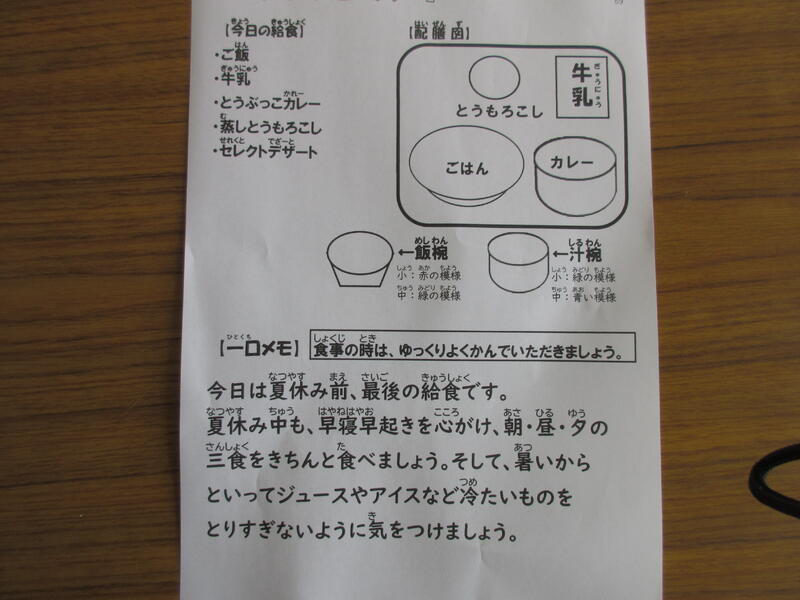 【今日の給食】
・ご飯
・牛乳
・とうぶっこカレー
・蒸しとうもろこし
・セレクトデザート
【配膳図】
牛乳
とうもろこし
ごはん
カレー
←飯椀
小：赤の模様
中：緑の模様
←汁椀
小：緑の模様
中：青い模様
【一口メモ】
食事の時は、ゆっくりよくかんでいただきましょう。
今日は夏休み前、最後の給食です。
夏休み中も、早寝早起きを心がけ、朝・昼・夕の
三食をきちんと食べましょう。そして、暑いから
といってジュースやアイスなど冷たいものを
とりすぎないように気をつけましょう。